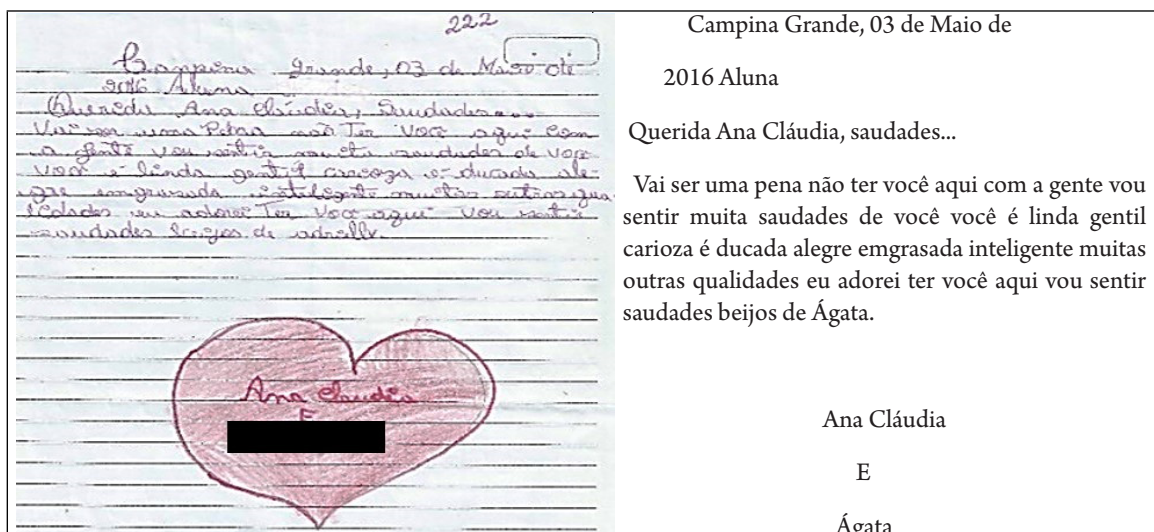 222
Campina Grande, 03 de Maio de
2016 Aluna
Querida Ana Cláudia, Saudades...
Vai ser uma Pena não Ter Você aqui com
a gente vou sentir muita saudades de voce
voce é linda gentil é ducada ale-
gre emgrasada muitas outras qua
lidades eu adorei Ter Voce aqui vou sentir
saudades beijos de
Ana Claudia
E
Campina Grande, 03 de Maio de
2016 Aluna
Querida Ana Cláudia, saudades...
Vai ser uma pena não ter você aqui com a gente vou
sentir muita saudades de você você é linda gentil
carioza é ducada alegre emgrasada inteligente muitas
outras qualidades eu adorei ter você aqui vou sentir
saudades beijos de Ágata.
Ana Cláudia
E
Ágata